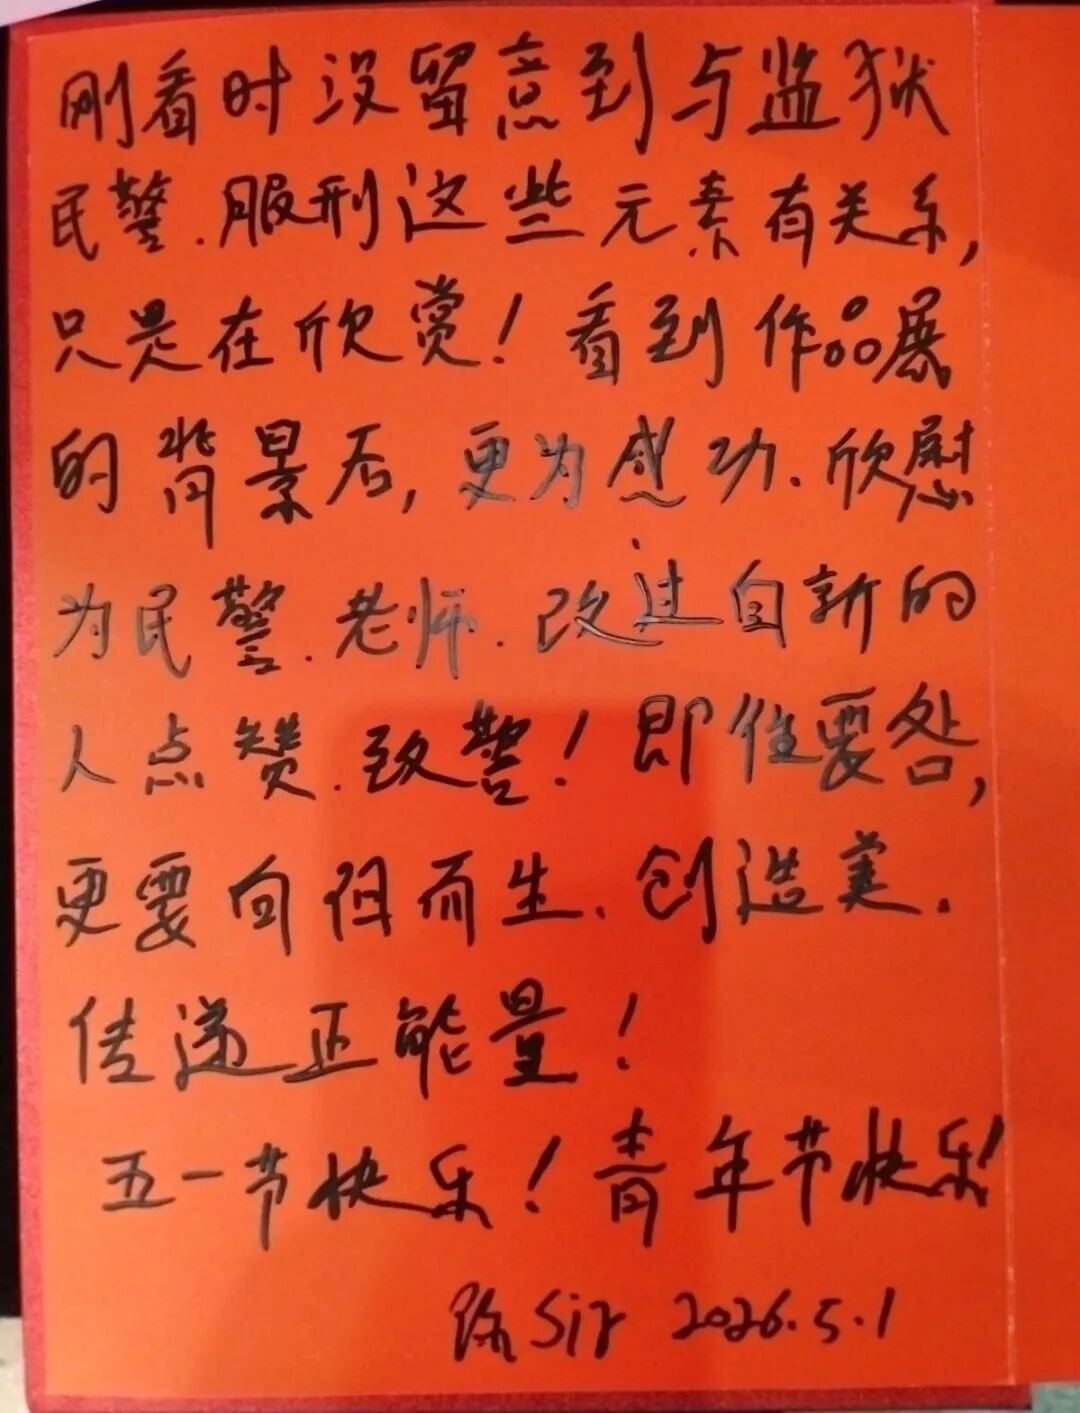 刚看时没留意到与监狱
民警.服刑这些元素有关系,
只是在欣赏!看到作品展
的背景后,更为感动.欣慰
为民警.老师.改过自新的
人点赞.致敬!即使要咎,
更要向阳而生、创造美.
传递正能量!
五一节快乐!青年节快乐!
陈Sir 2026.5.1